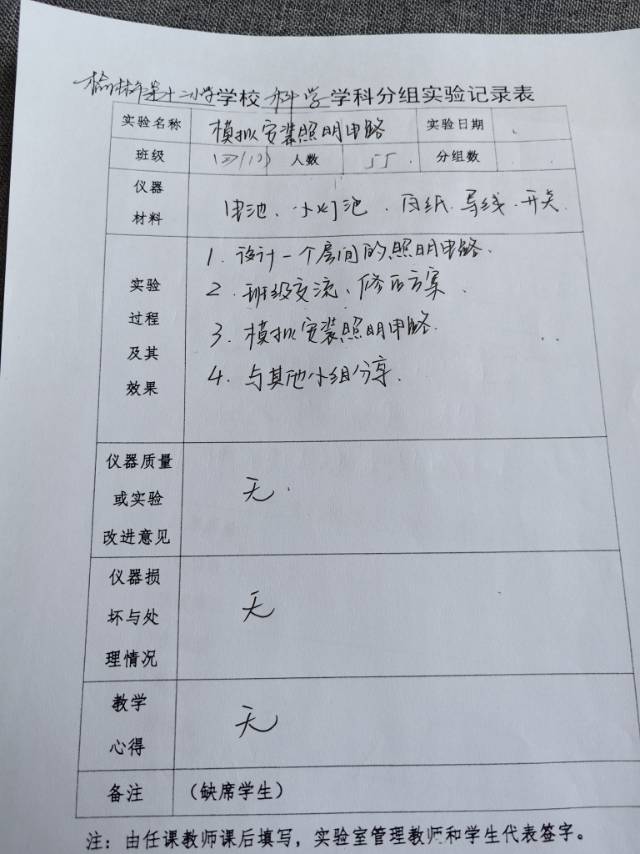 榆林市第十二小学学校 科学 学科分组实验记录表
实验名称 模拟安装照明电路 实验日期
班级 人数 55 分组数
仪器 材料 电池、小灯泡、白纸、导线、开关
实验 过程 及其 效果
1. 设计一个房间的照明电路.
2. 班级交流、修改方案.
3. 模拟安装照明电路.
4. 与其他小组分享.
仪器质量 或实验 改进意见 无.
仪器损 坏与处 理情况 无
教学 心得 无
备注 (缺席学生)
注：由任课教师课后填写，实验室管理教师和学生代表签字。